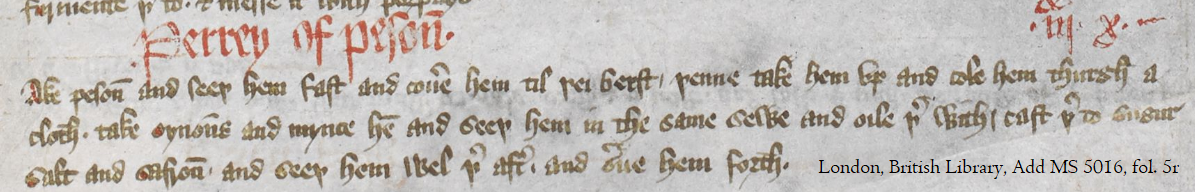 Perrey of pesoun̄.
.iii. x.
Ake pesoun̄ and seeþ hem fast and couẽ hem til þei berst. þenne take hem vp and cole hem thurgh a
cloth. take oynouns and mynce hẽ and seeþ hem in the same sewe and oile þ͛ with; cast þ͛ to sugur
salt and safroun̄. and seeþ hem wel þ͛ aft͛. and s͛ue hem forth.
London, British Library, Add MS 5016, fol. 5r